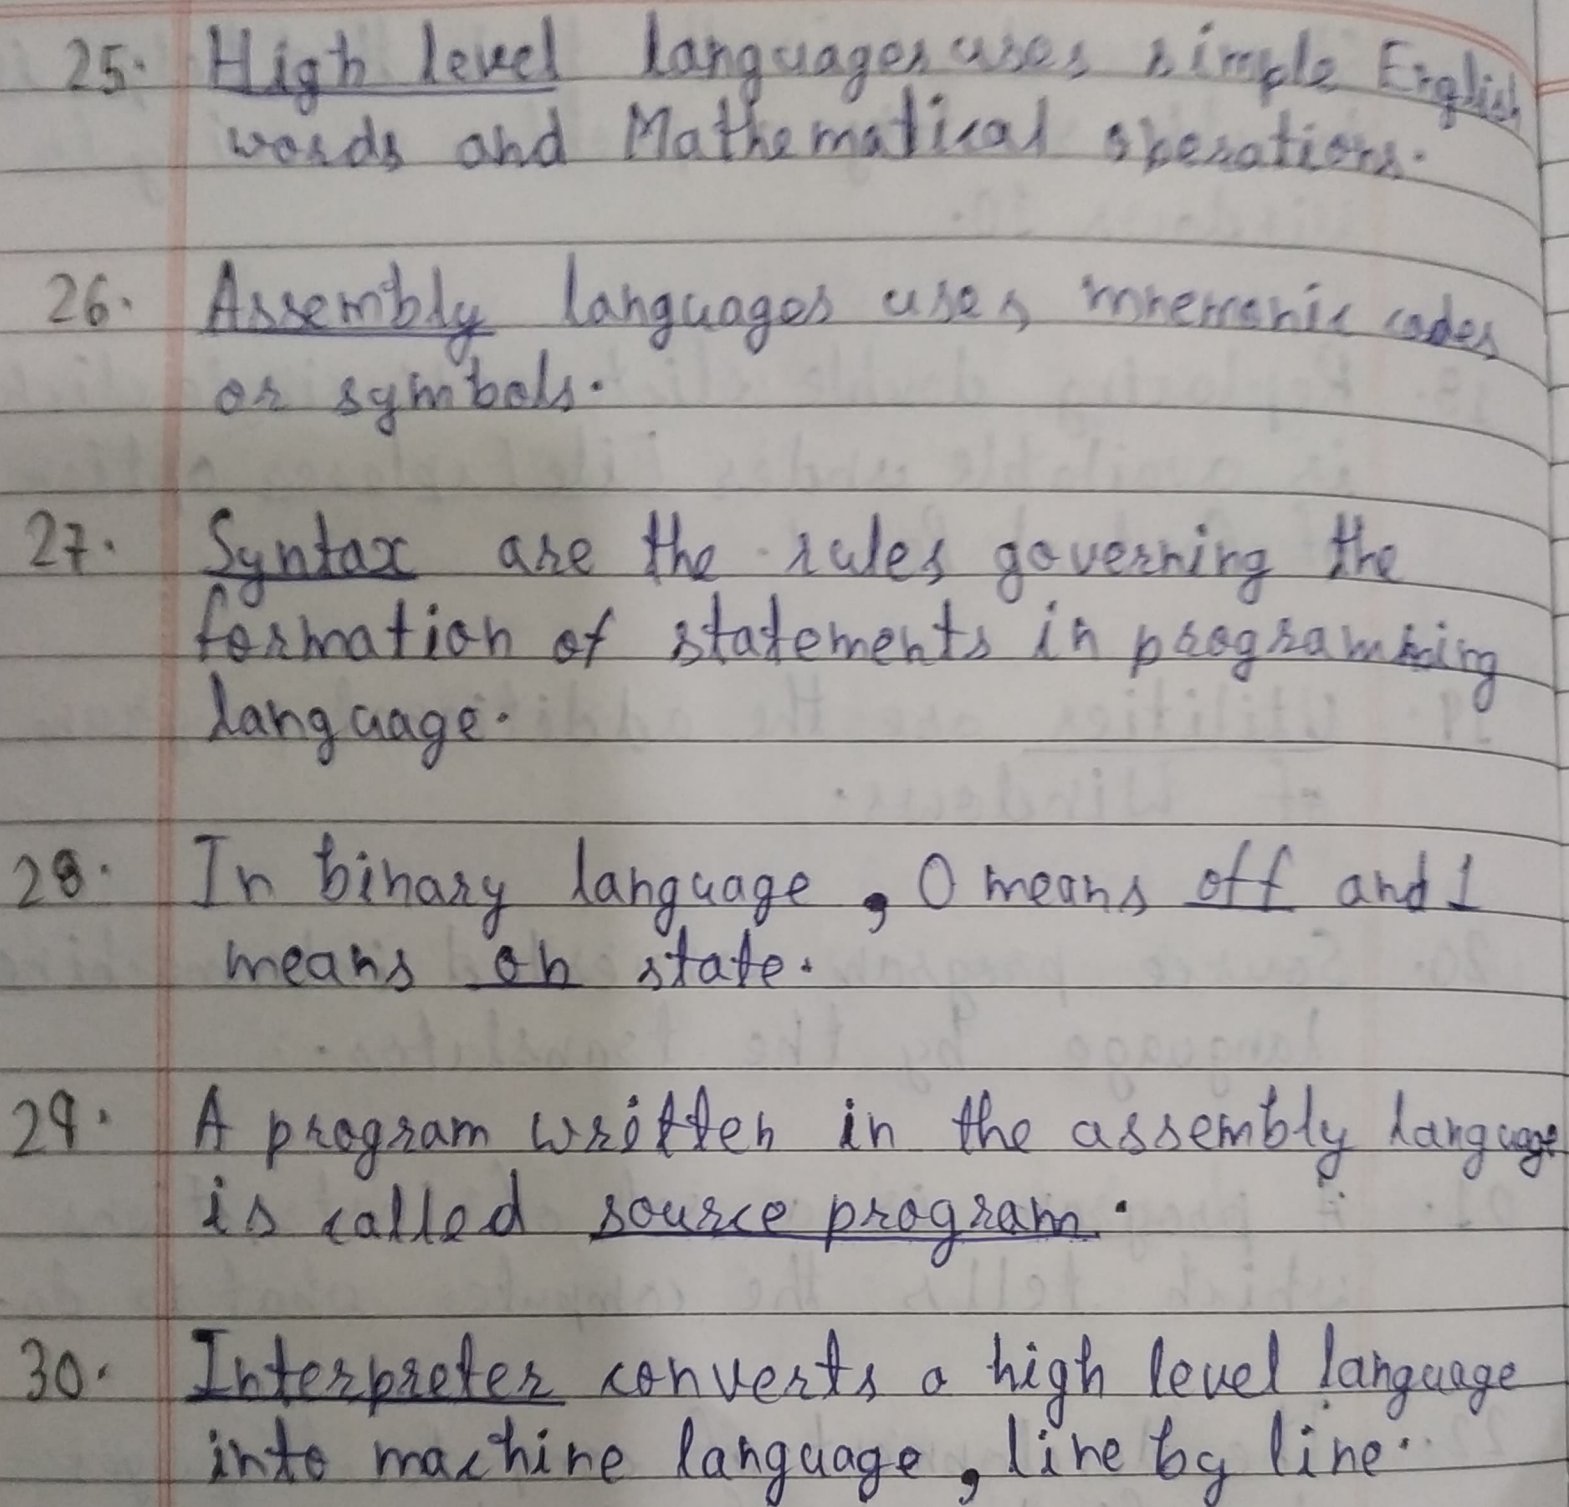 25. High level languages uses simple English
words and Mathematical operations.
26. Assembly languages uses mnemonic codes
or symbols.
27. Syntax are the rules governing the
formation of statements in programming
language.
28. In binary language, 0 means off and 1
means on state.
29. A program written in the assembly language
is called source program.
30. Interpreter converts a high level language
into machine language, line by line.